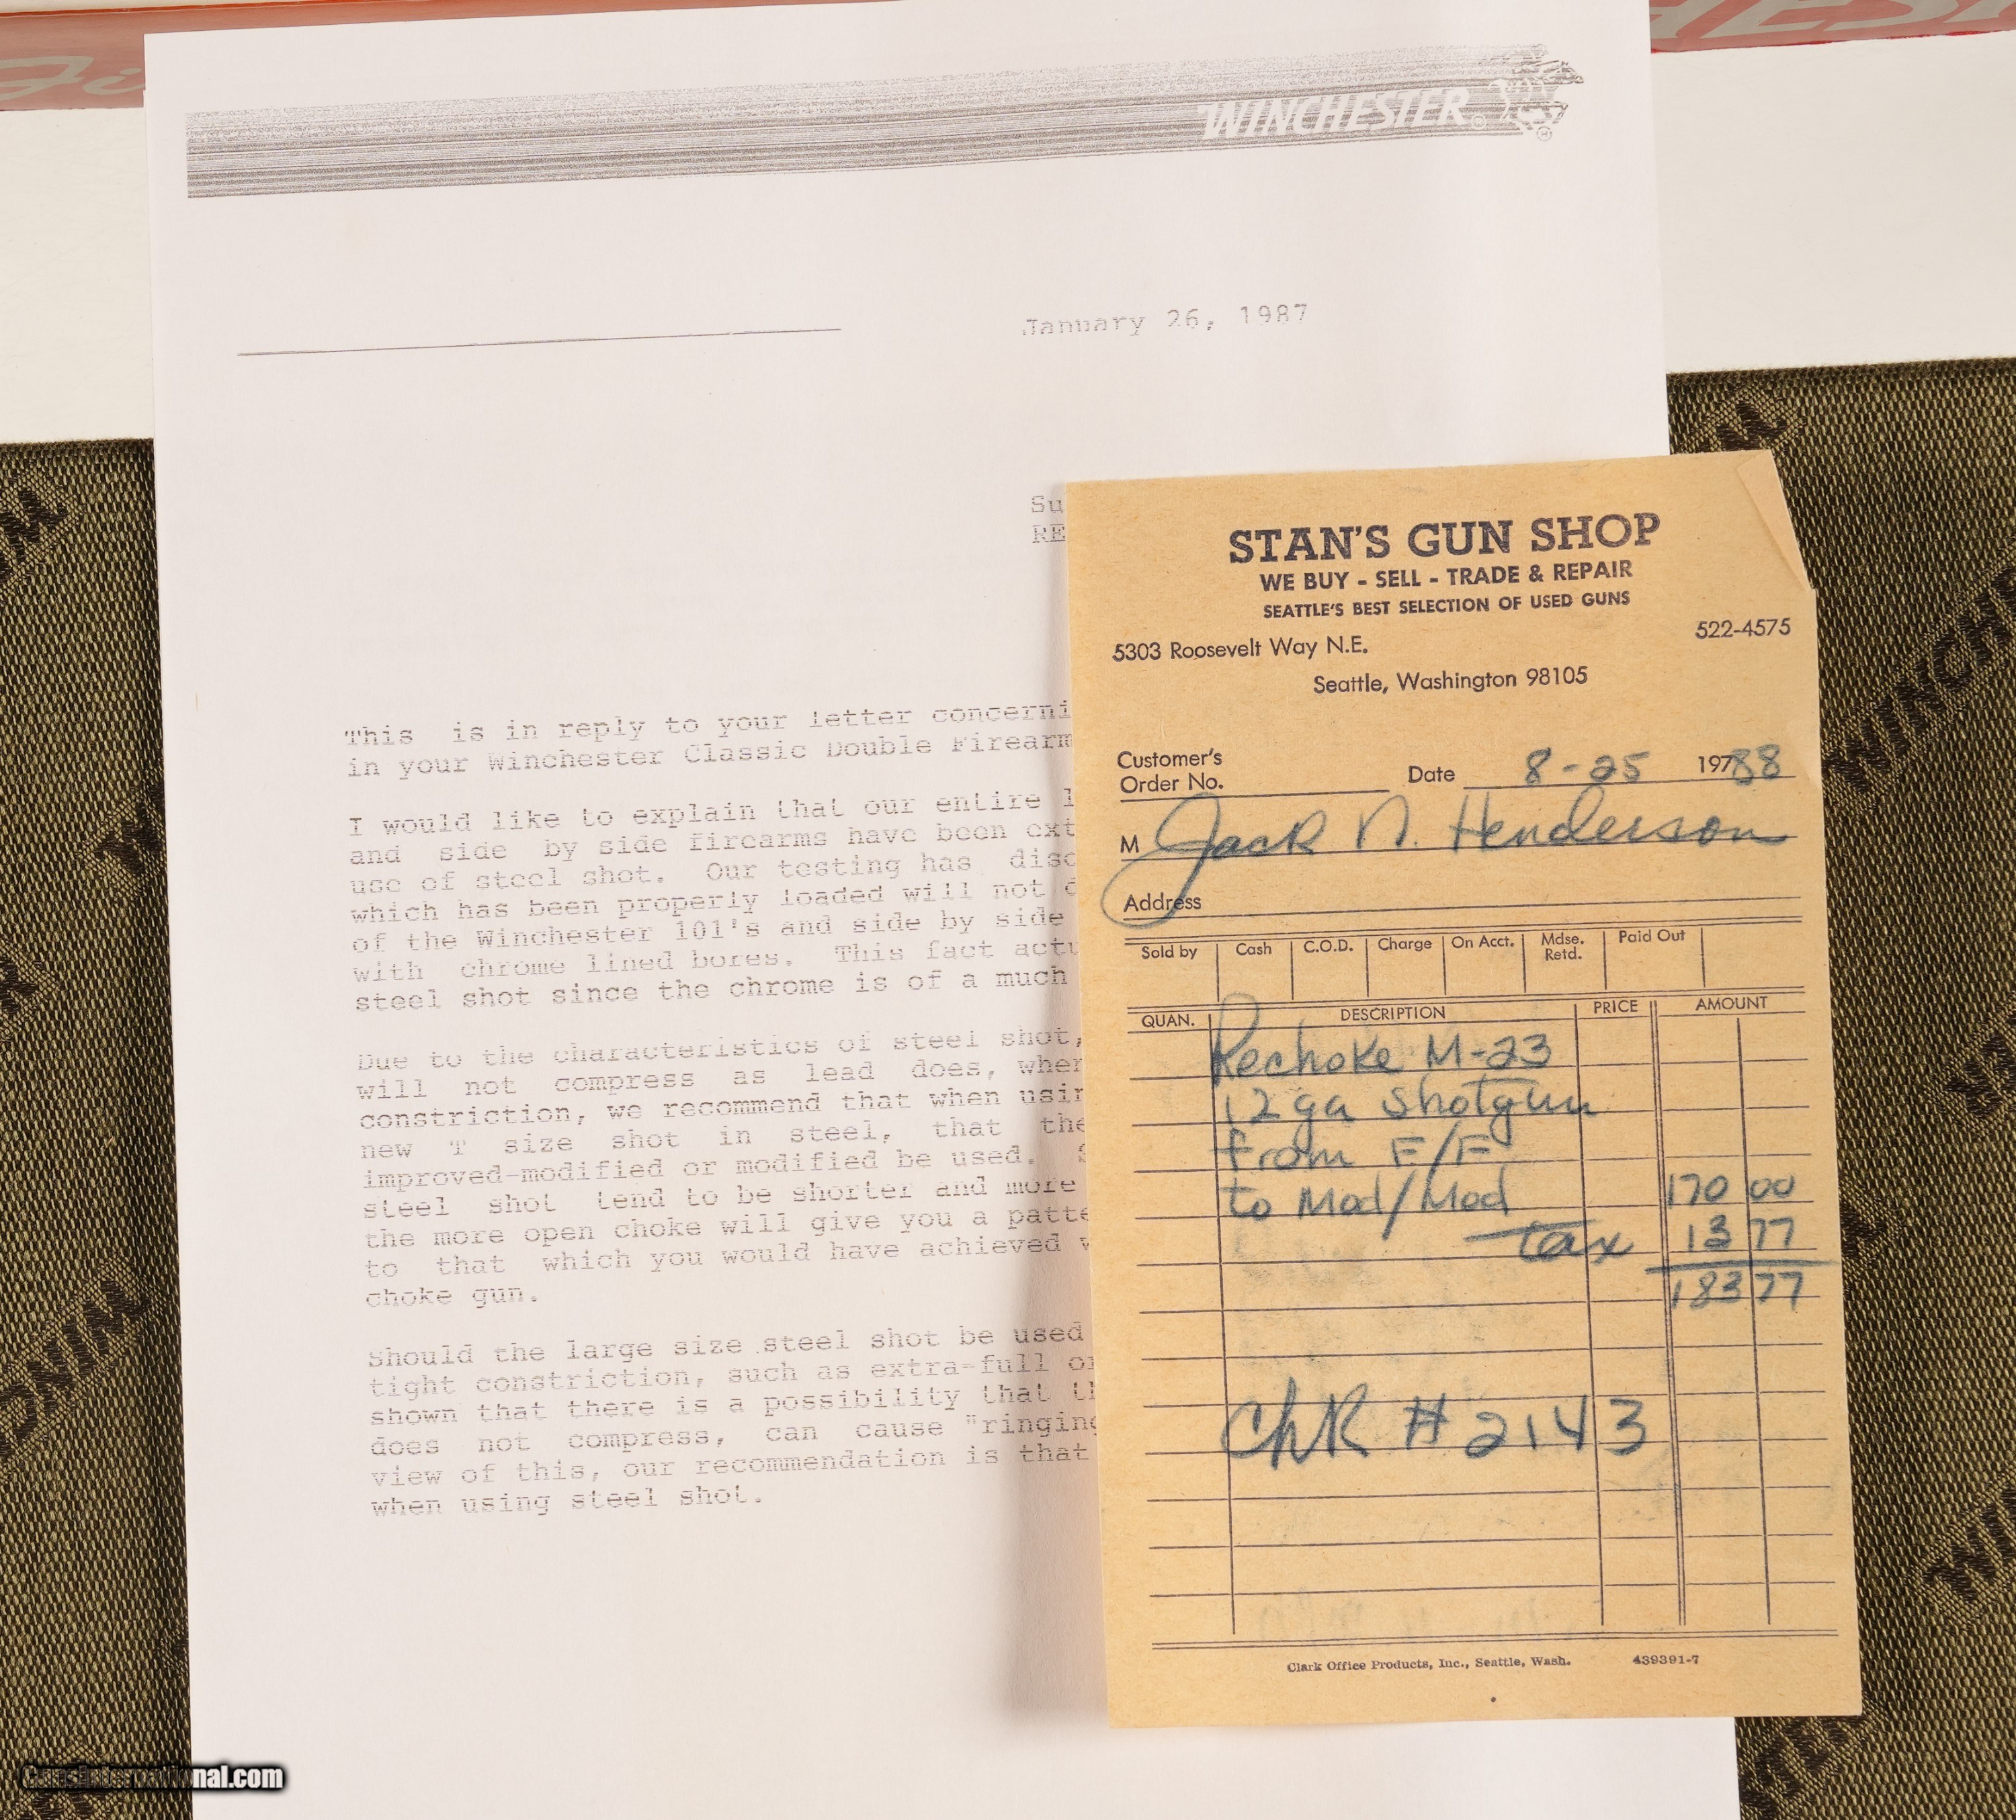 WINCHESTER
January 26, 1987
Su
RE
This is in reply to your letter concerni
in your Winchester Classic Double Firearm
I would like to explain that our entire l
and side by side firearms have been ext
use of steel shot. Our testing has disc
which has been properly loaded will not
of the Winchester 101's and side by side
with chrome lined bores. This fact actu
steel shot since the chrome is of a much
Due to the characteristics of steel shot,
will not compress as lead does, wher
constriction, we recommend that when usin
new T size shot in steel, that the
improved-modified or modified be used.
steel shot tend to be shorter and more
the more open choke will give you a patte
to that which you would have achieved
choke gun.
Should the large size steel shot be used
tight constriction, such as extra-full or
shown that there is a possibility that th
does not compress, can cause "ringing
view of this, our recommendation is that
when using steel shot.
STAN'S GUN SHOP
WE BUY - SELL - TRADE & REPAIR
SEATTLE'S BEST SELECTION OF USED GUNS
522-4575
5303 Roosevelt Way N.E.
Seattle, Washington 98105
Customer's
Order No. Date 8-25 1988
M Jack N. Henderson
Address
Sold by Cash C.O.D. Charge On Acct. Mdse. Retd. Paid Out
QUAN. DESCRIPTION PRICE AMOUNT
Rechoke M-23
12 ga Shotgun
from F/F
to Mod/Mod 170 00
tax 13 77
183 77
Chk # 2143
Clark Office Products, Inc., Seattle, Wash. 439391-7
GunsInternational.com